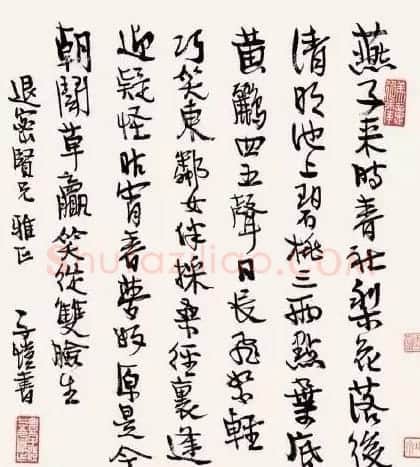 燕子来時春社梨花落後
清明池上碧桃三兩點葉底
黄鸝四五聲日長飛絮輕
巧笑東鄰女伴採桑徑裏逢
迎疑怪昨宵春夢好原是今
朝鬥草贏笑從雙臉生
退密賢兄雅正
子愷書
Shufaziliao.com